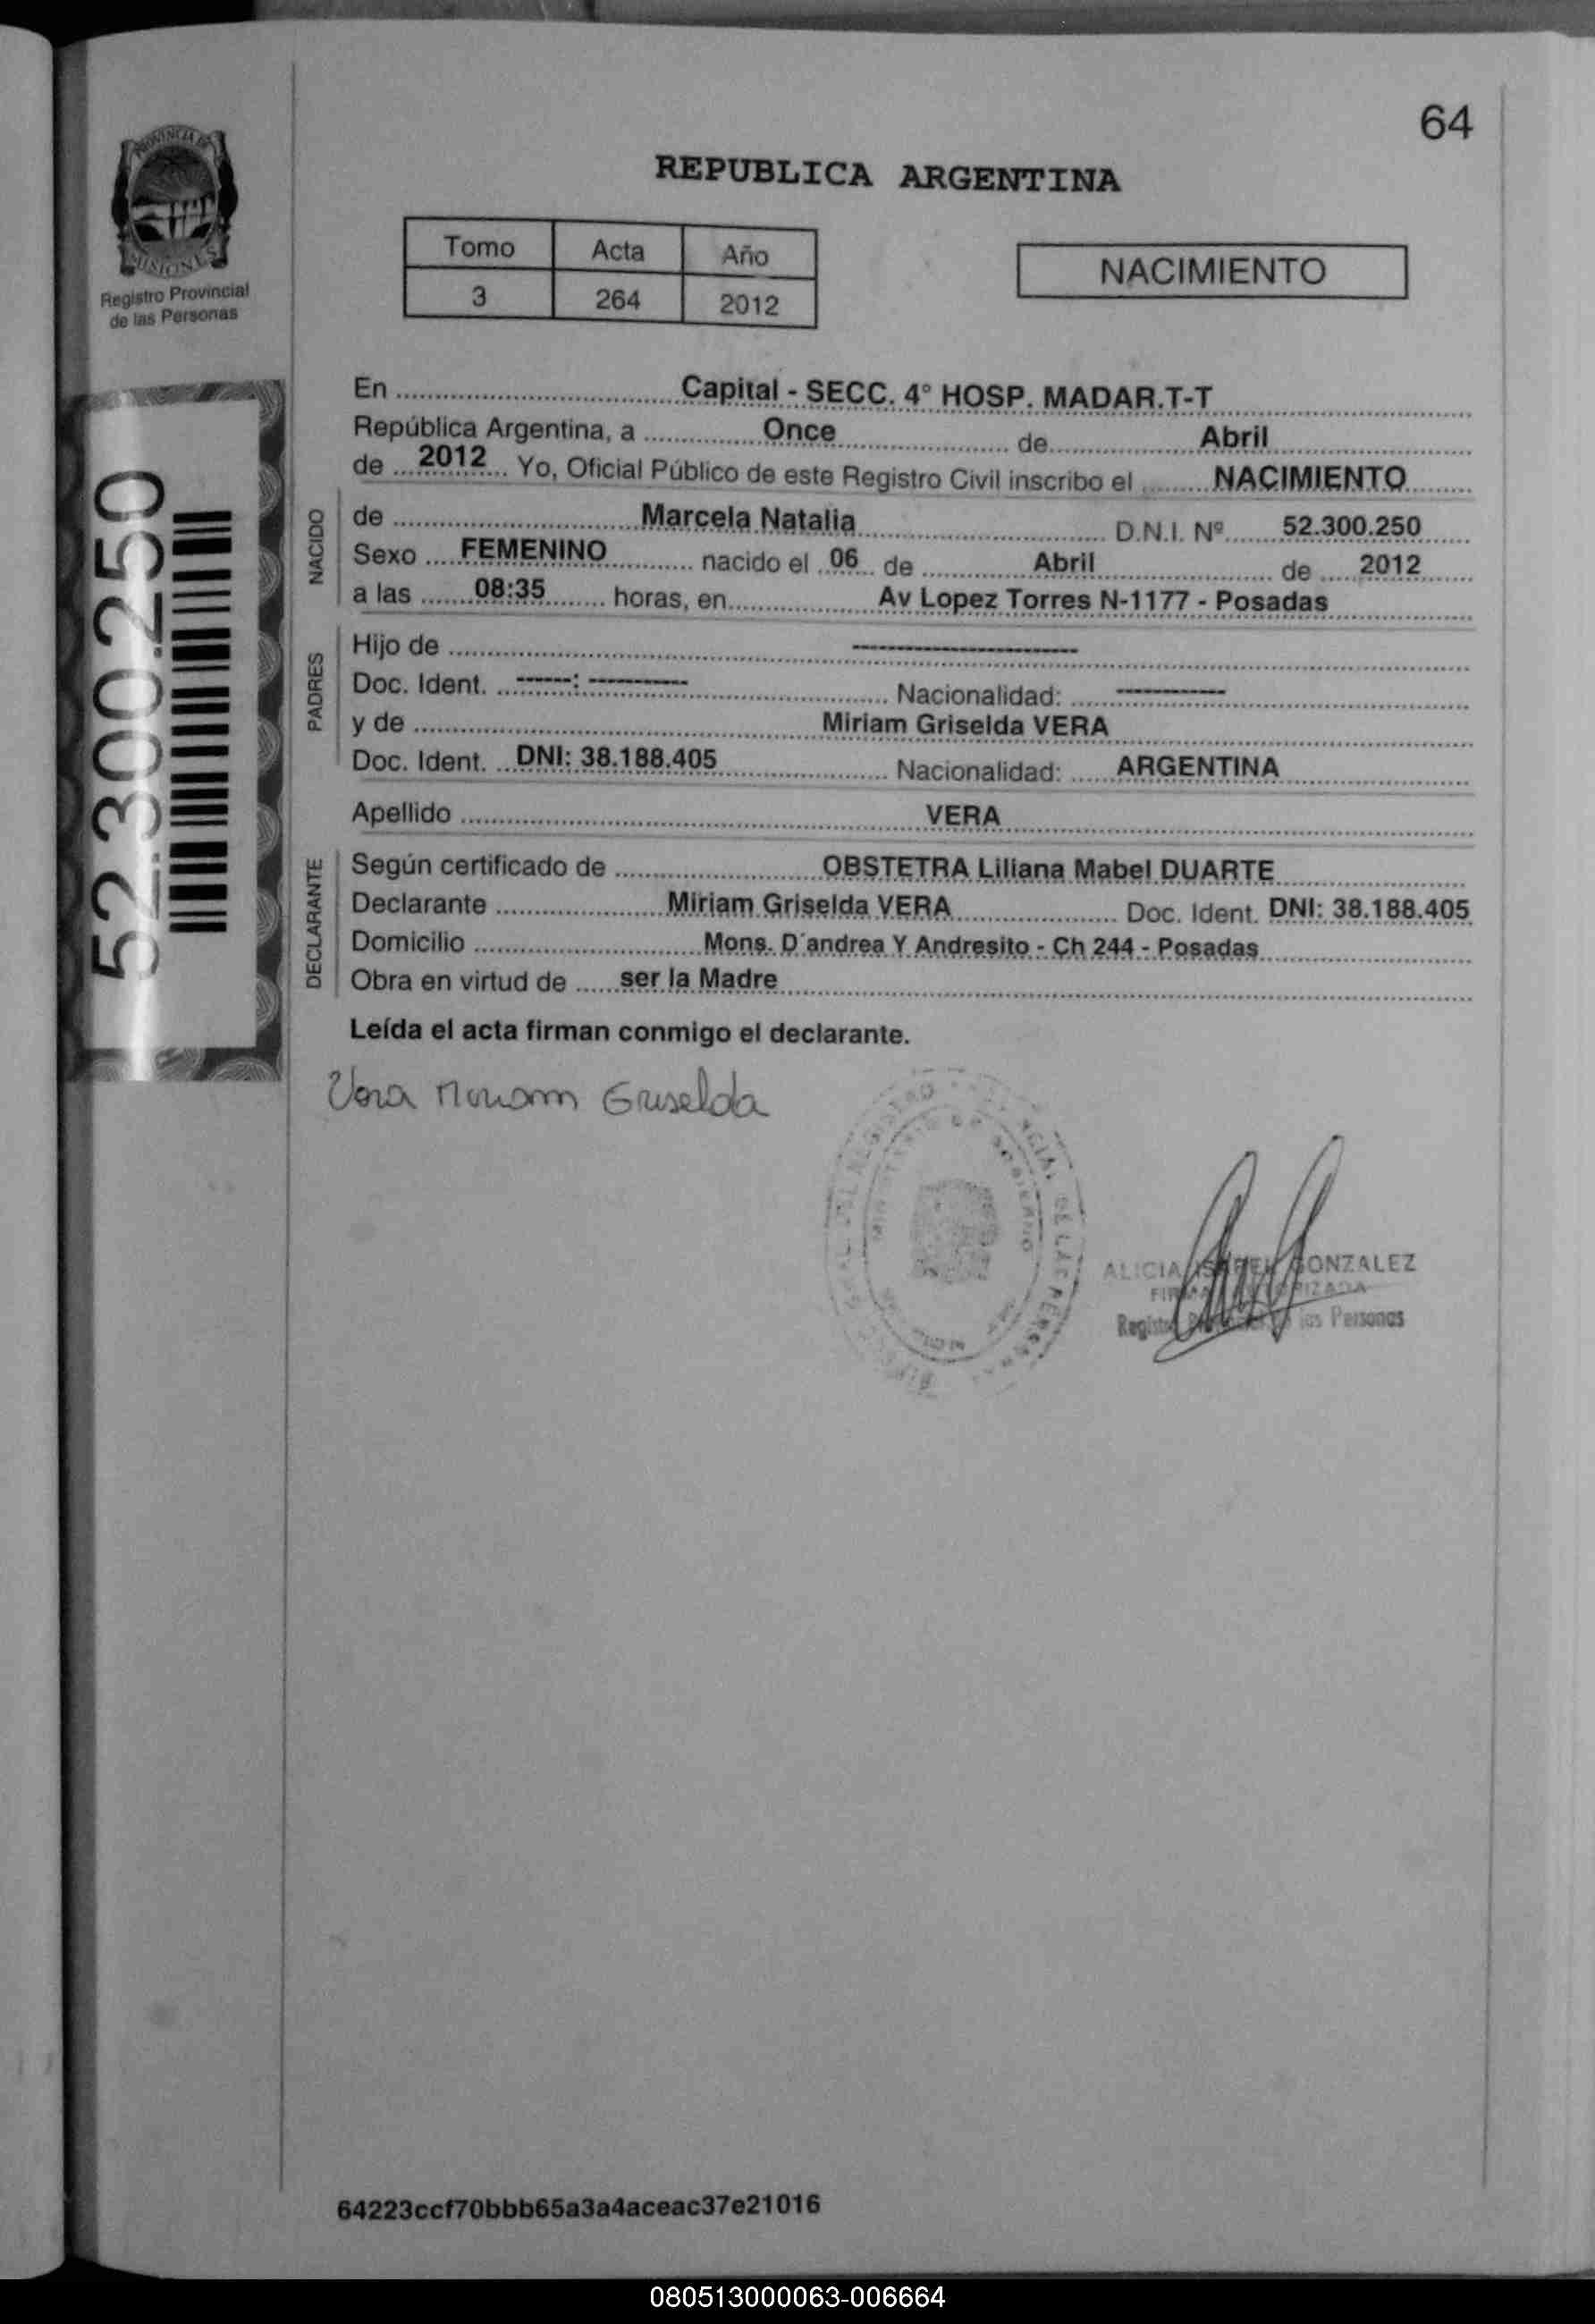 64
PROVINCIA DE
MISIONES
Registro Provincial
de las Personas
REPUBLICA ARGENTINA
Tomo Acta Año
3 264 2012
NACIMIENTO
52.300.250
En Capital - SECC. 4° HOSP. MADAR.T-T
República Argentina, a Once de Abril
de 2012 Yo, Oficial Público de este Registro Civil inscribo el NACIMIENTO
NACIDO
de Marcela Natalia D.N.I. Nº 52.300.250
Sexo FEMENINO nacido el 06 de Abril de 2012
a las 08:35 horas, en Av Lopez Torres N-1177 - Posadas
PADRES
Hijo de --------------------
Doc. Ident. ------: ---------- Nacionalidad: ----------
y de Miriam Griselda VERA
Doc. Ident. DNI: 38.188.405 Nacionalidad: ARGENTINA
Apellido VERA
DECLARANTE
Según certificado de OBSTETRA Liliana Mabel DUARTE
Declarante Miriam Griselda VERA Doc. Ident. DNI: 38.188.405
Domicilio Mons. D´andrea Y Andresito - Ch 244 - Posadas
Obra en virtud de ser la Madre
Leída el acta firman conmigo el declarante.
Vera Miriam Griselda
ALICIA ISABEL GONZALEZ
FIRMA AUTORIZADA
Registro Provincial de las Personas
64223ccf70bbb65a3a4aceac37e21016
080513000063-006664